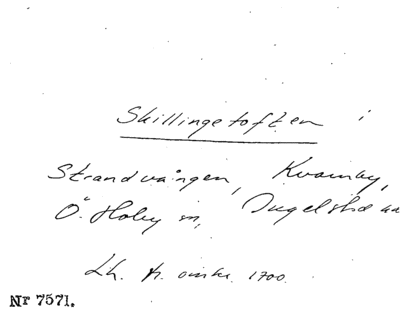 Skillingetoften i
Strandvången, Kvarnby,
Ö. Hoby sn, Ingelstad
Lh. fr. omkr. 1700.
Nr 7571.